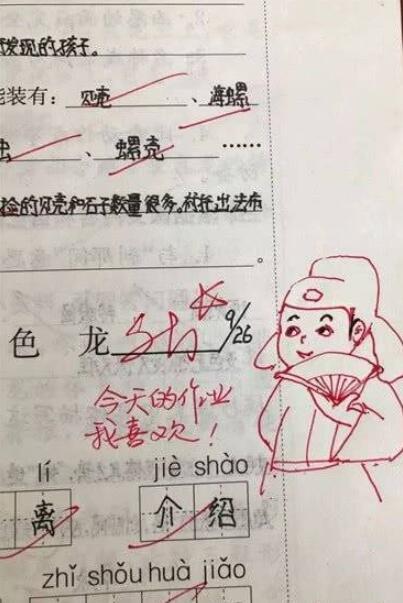 发现的孩子。
能装有：贝壳、海螺
虫、螺壳……
捡的贝壳和石子数量很多。衬托出去布
。
色 龙
9/26
今天的作业
我喜欢！
lí jiè shào
离 介 绍
zhǐ shǒu huà jiǎo